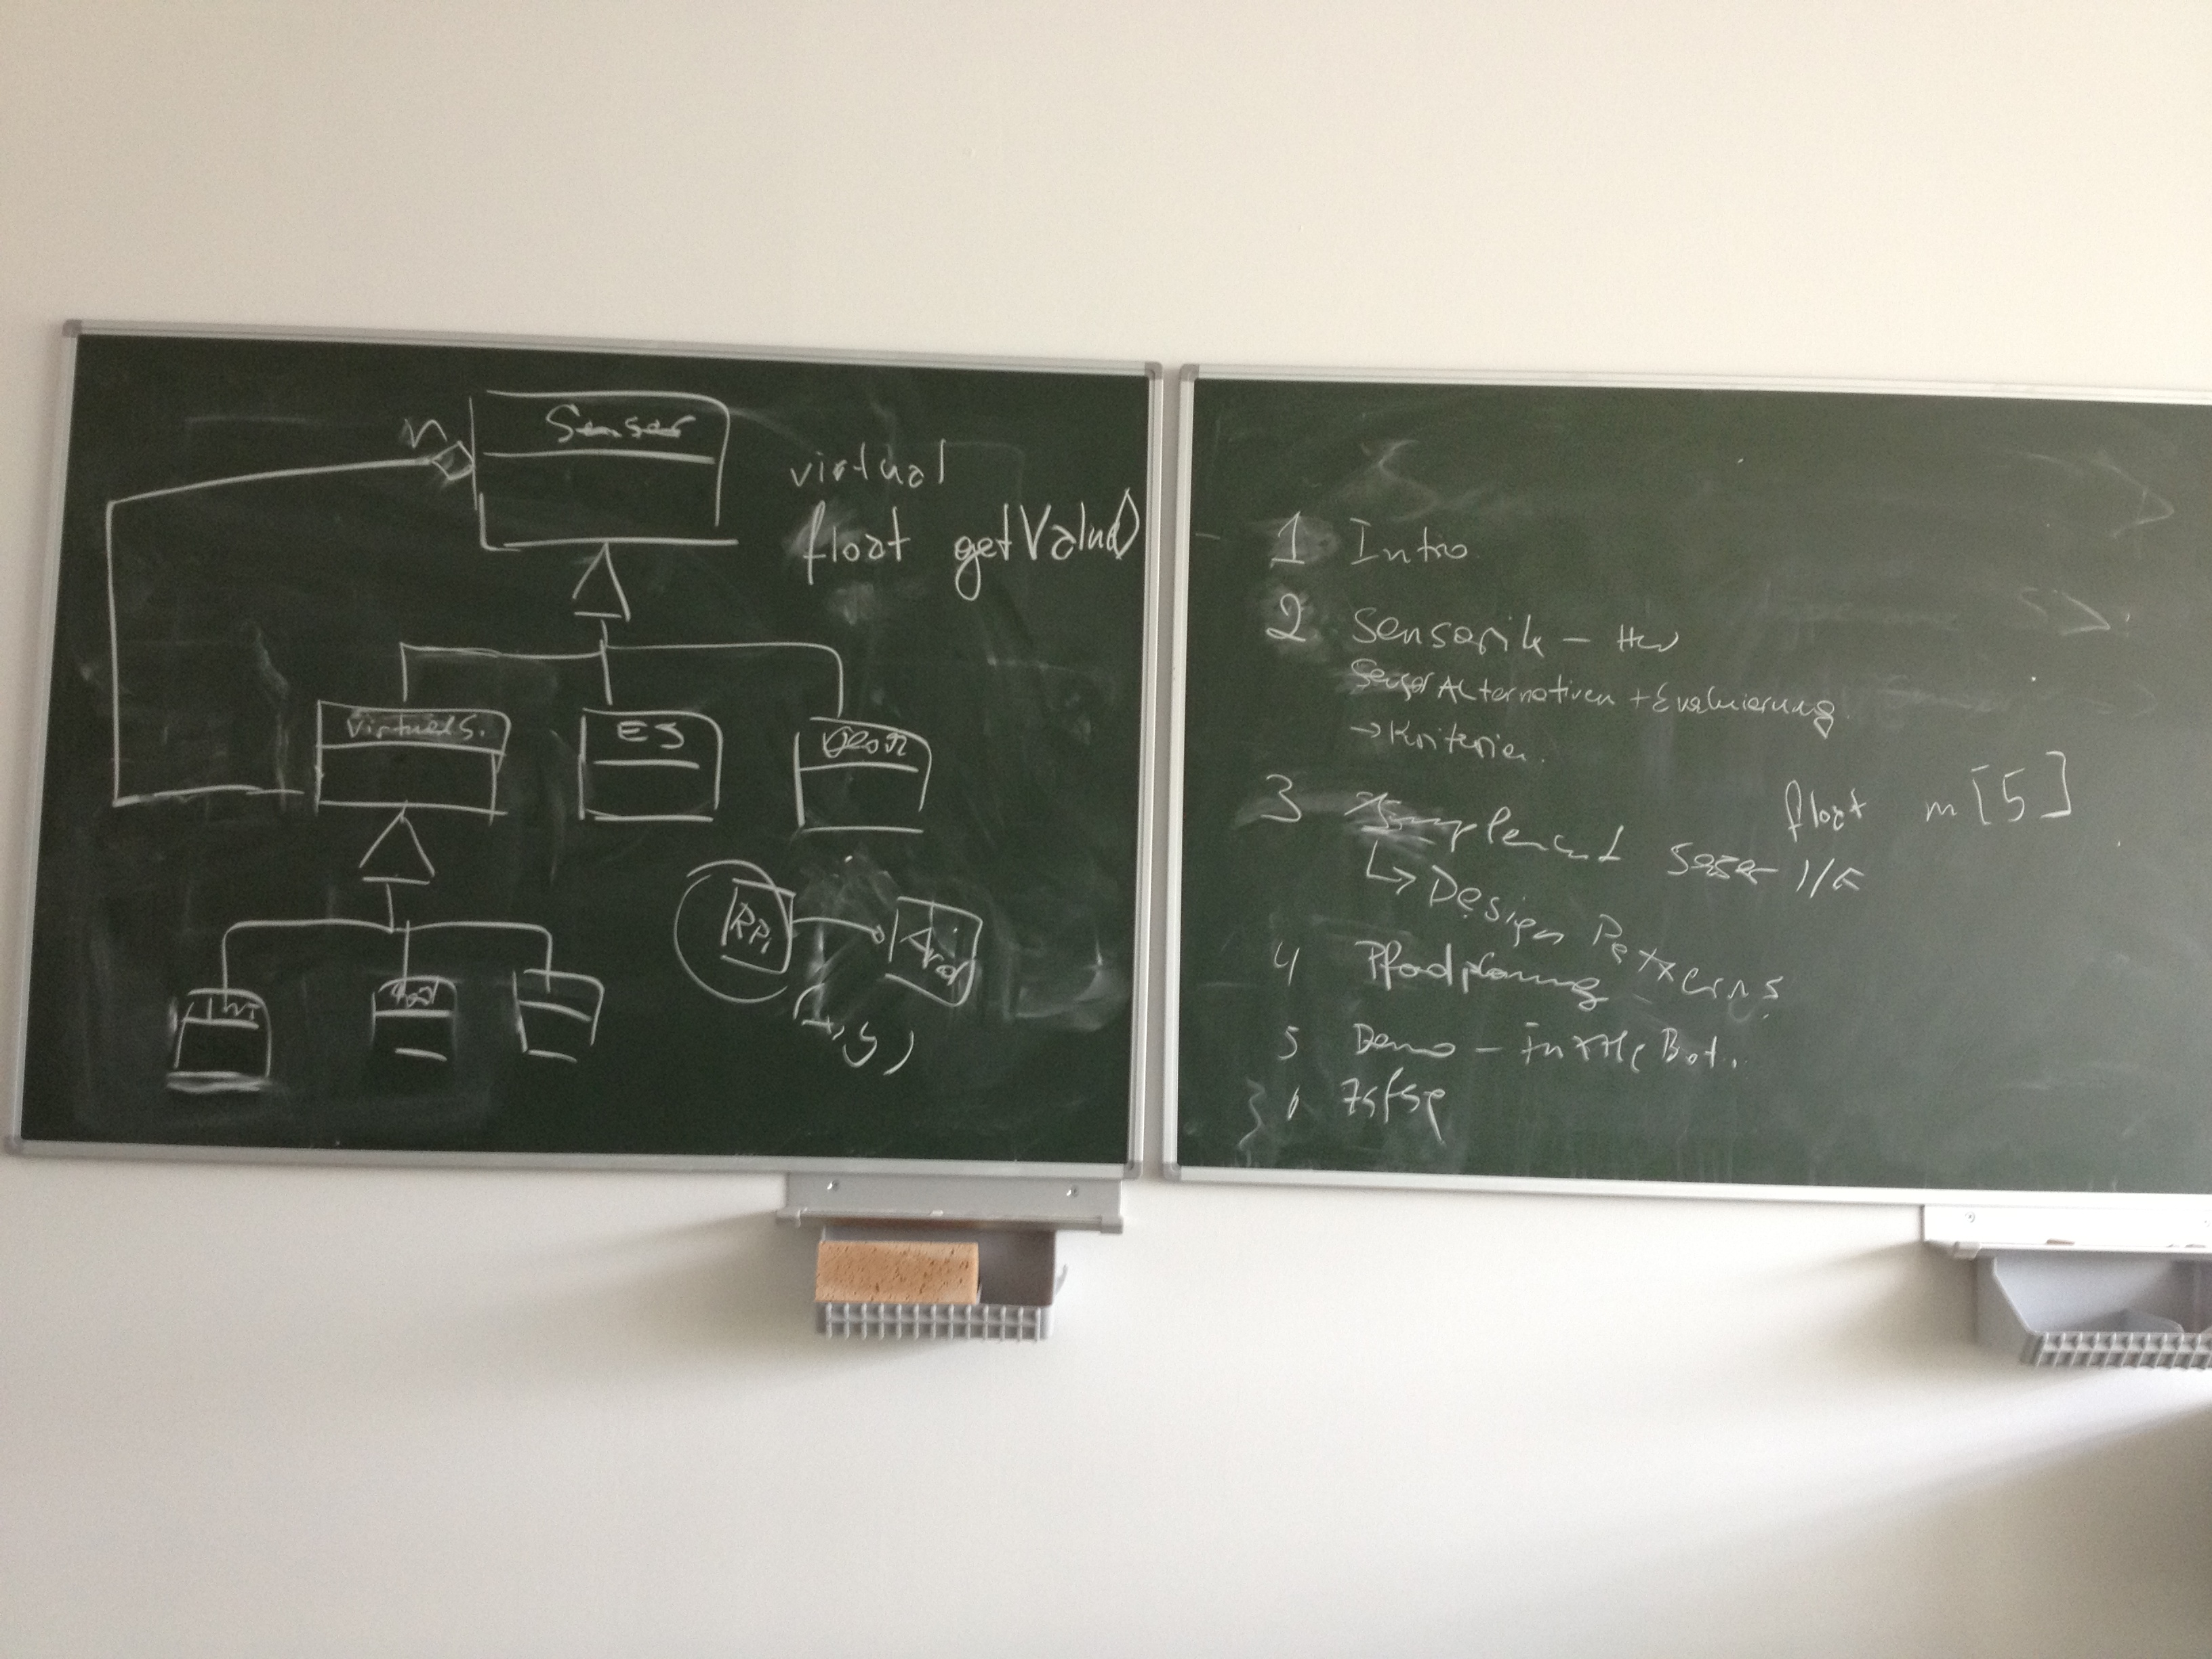 n
Sensor
virtual
float getValue()
VirtuelS.
ES
RPi
1 Intro
2 Sensorik – HW
Sensor Alternativen + Evaluierung
→ Kriterien
float m[5]
3 Implement Sensor I/F
↳ Design Patterns
4 Pfadplanung
5 Demo – TurtleBot.
6 Zsfsg